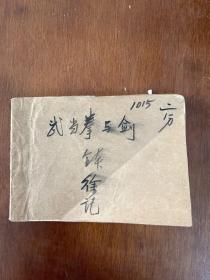 1015
二万
武当拳与剑
徐记